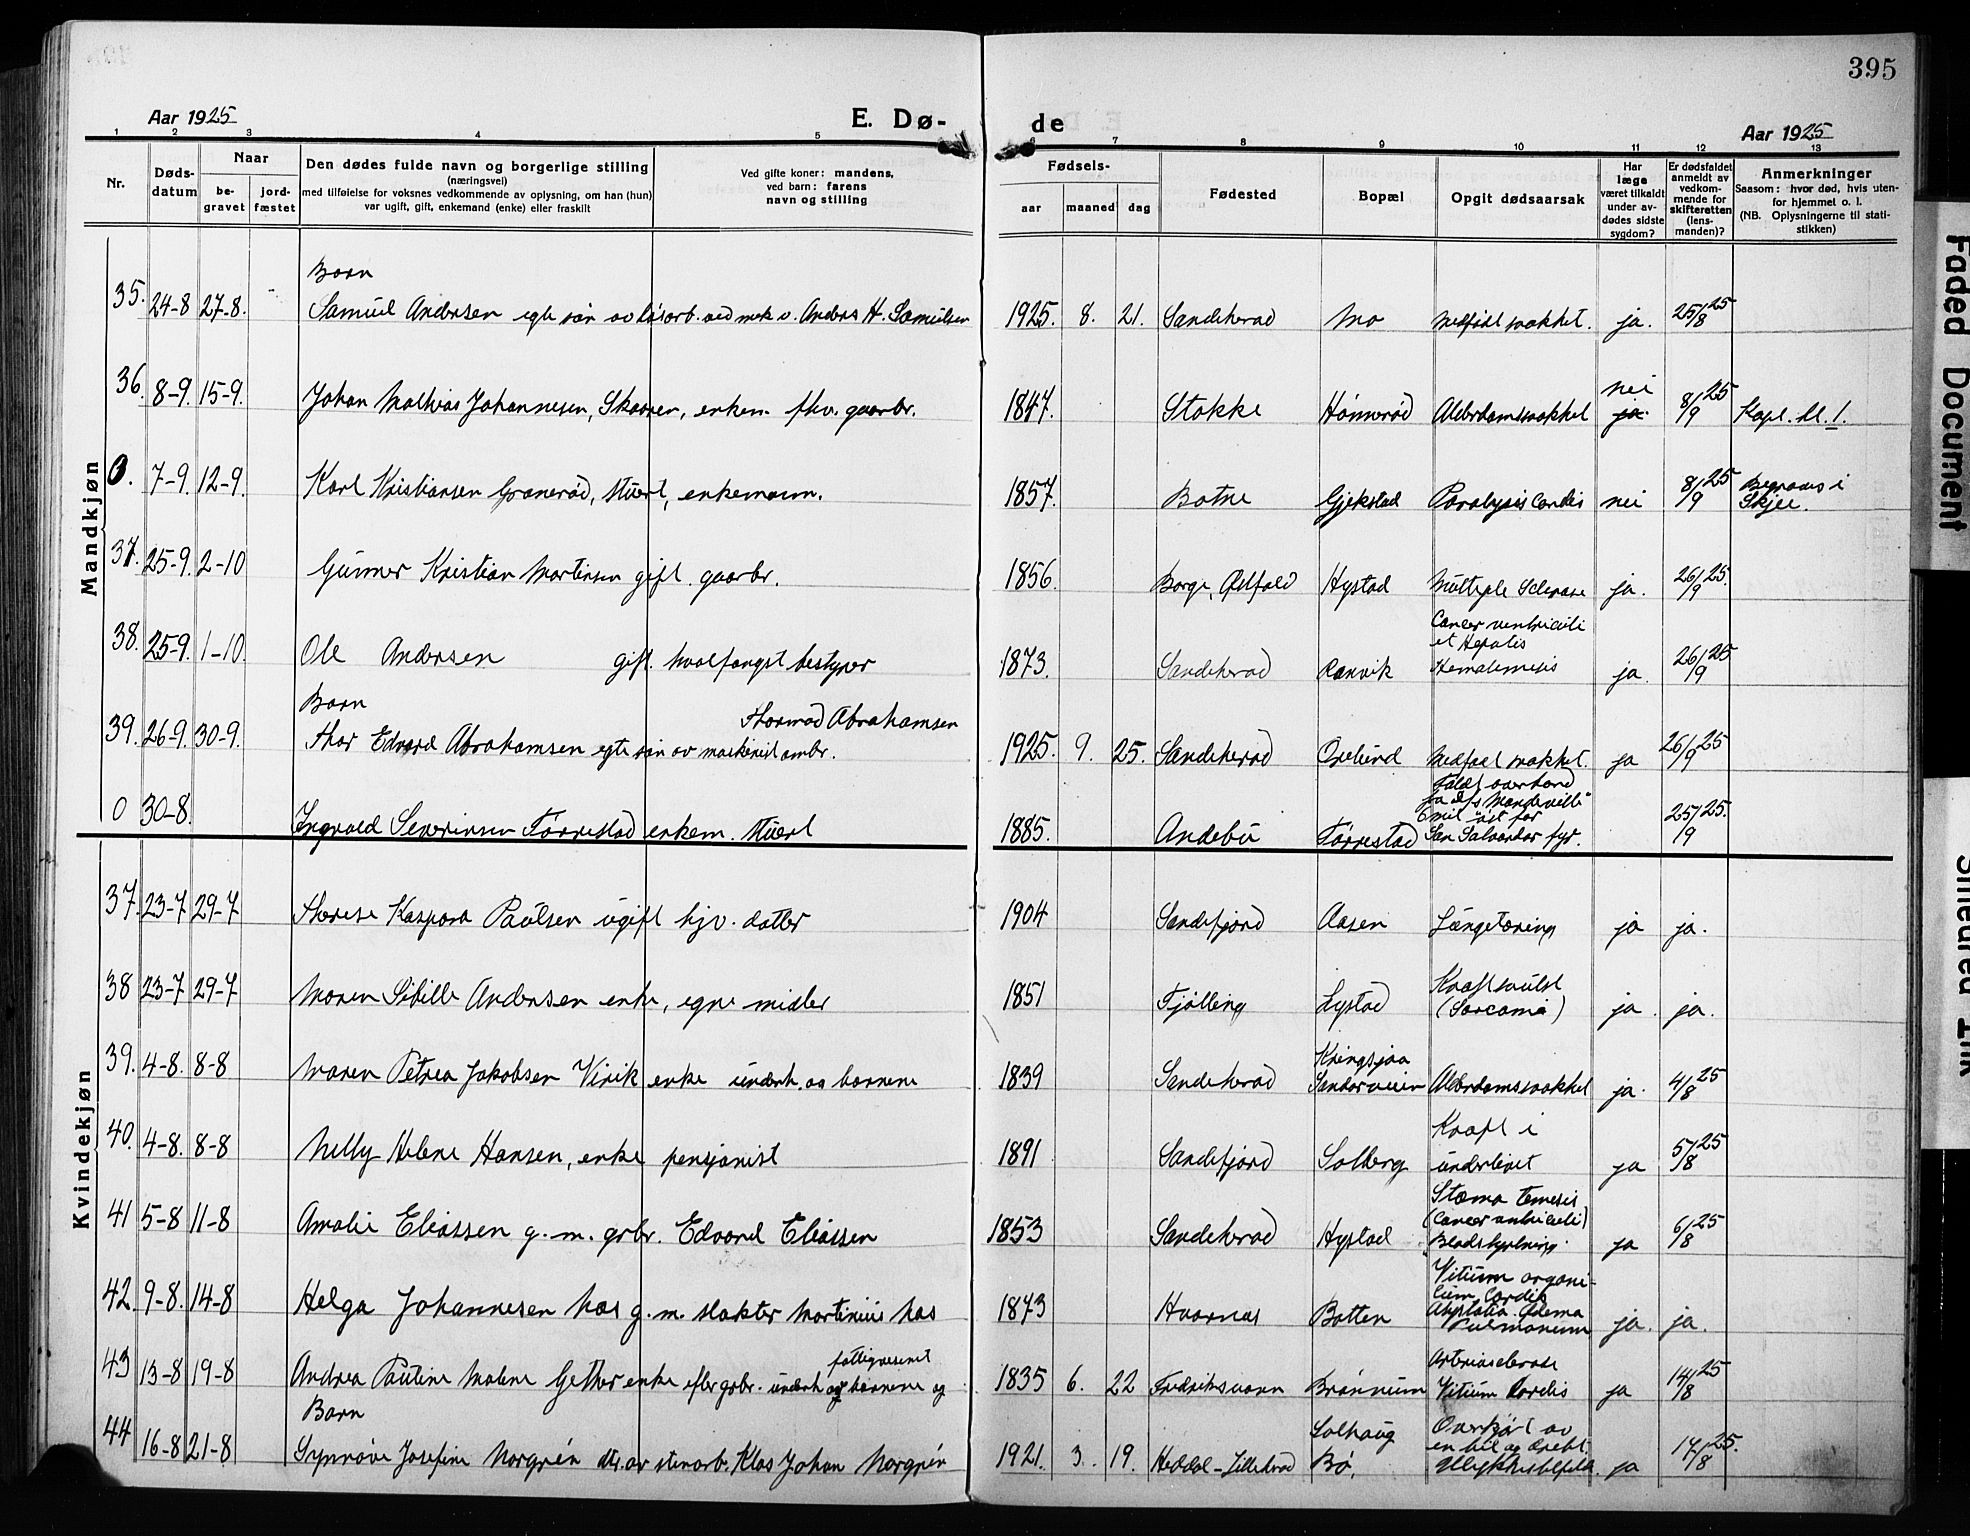 395
Aar 1925
E. Dø-
de
Aar 1925
1 2 3 4 5 6 7 8 9 10 11 12 13
Nr.
Døds-
datum
Naar
be-
gravet
jord-
fæstet
Den dødes fulde navn og borgerlige stilling
(næringsvei)
med tilføielse for voksnes vedkommende av oplysning, om han (hun)
var ugift, gift, enkemand (enke) eller fraskilt
Ved gifte koner: mandens,
ved barn: farens
navn og stilling
Fødsels-
aar
maaned
dag
Fødested
Bopæl
Opgit dødsaarsak
Har
læge
været tilkaldt
under av-
dødes sidste
sygdom?
Er dødsfaldet
anmeldt av
vedkom-
mende for
skifteretten
(lens-
manden)?
Anmerkninger
Saasom: hvor død, hvis uten-
for hjemmet o. l.
(NB. Oplysningerne til stati-
stikken)
Mandkjøn
Barn
35. 24-8 27-8. Samuel Andersen egte søn av løsarb. ved mek v. Anders H. Samuelsen 1925. 8. 21. Sandeherad Mo Medfødt svakhet. ja. 25/8 25
36. 8-9. 15-9. Johan Mathias Johannesen, Skaaren, enkem. fhv. gaarbr. 1847. Stokke Alderdomssvakhet nei ja. 8/9 25 Kapt. kl. 1.
0. 7-9. 12-9. Karl Kristiansen Granerød, Stuert, enkemann. 1857. Botne Gjekstad Paralysis Cordis nei 8/9 25 Begraves i
Skjee.
37. 25-9. 2-10 Gunner Kristian Martinsen gift. gaarbr. 1856. Borge, Østfold Hystad Multiple Sclerose ja. 26/9 25.
Cancer ventriculi
et Hepatis
38. 25-9. 1-10. Ole Andersen gift. hvalfangst bestyrer 1873. Sandeherad Ranvik Hematemesis ja. 26/9 25
Barn
Thormod Abrahamsen
39. 26-9. 30-9. Thor Edvard Abrahamsen egte søn av maskinist ombr. 1925. 9. 25. Sandeherad Oselund Medfødt svakhet. ja 26/9 25
Faldt overbord
fra d/s "Mandeville"
6 mil øst for
0 30-8. Ingvald Severinsen Torrestad enkem. stuert 1885. Andebu Torrestad San Salvador fyr. 25/9 25.
Kvindekjøn
37. 23-7 29-7 Therese Kaspara Paulsen ugift hjv. datter 1904 Sandefjord Aasen Lungetæring ja ja.
38 23-7 29-7 Maren Sibille Andersen enke, egne midler 1851 Tjølling Lystad Kræftsvulst
(Sarcoma) ja. ja.
39. 4-8. 8-8 Maren Petrea Jakobsen Virik enke underh. av barnene 1839 Sandeherad Kringsjaa
Sandarveien Alderdomssvakhet ja. 4/8 25
40. 4-8. 8-8 Nelly Helene Hansen, enke pensjonist 1891 Sandefjord Solberg Kræft i
underlivet ja 5/8 25
41 5-8 11-8 Amalie Eliassen g. m. grbr. Edvard Eliassen 1853 Sandeherad Hystad (Cancer ventriculi)
Blodstyrtning. ja 6/8 25
42. 9-8. 14-8 Helga Johannesen Aas g. m. slakter Martinius Aas 1873 Hvarnes Botten Vitium organi-
cum Cordis
Asystolia. Ødema
Pulmonum ja. ja.
fattigvesenet
43 13-8 19-8 Andrea Pauline Malene Gether enke efter grbr. underh av barnene og 1835 6. 22 Fredriksværn Brønnum Arteriosclerose
Vitium Cordis ja 14/8 25
Barn
44 16-8 21-8 Synnøve Josefine Norgrén dtr. av stenarb. Klas Johan Norgrén 1921. 3. 19. Heddal-Lilleherad Solhaug
Bø. Overkjørt av
en bil og dræbt.
Ulykkestilfeld. ja 17/8 25.
Faded Document
Smeared Ink